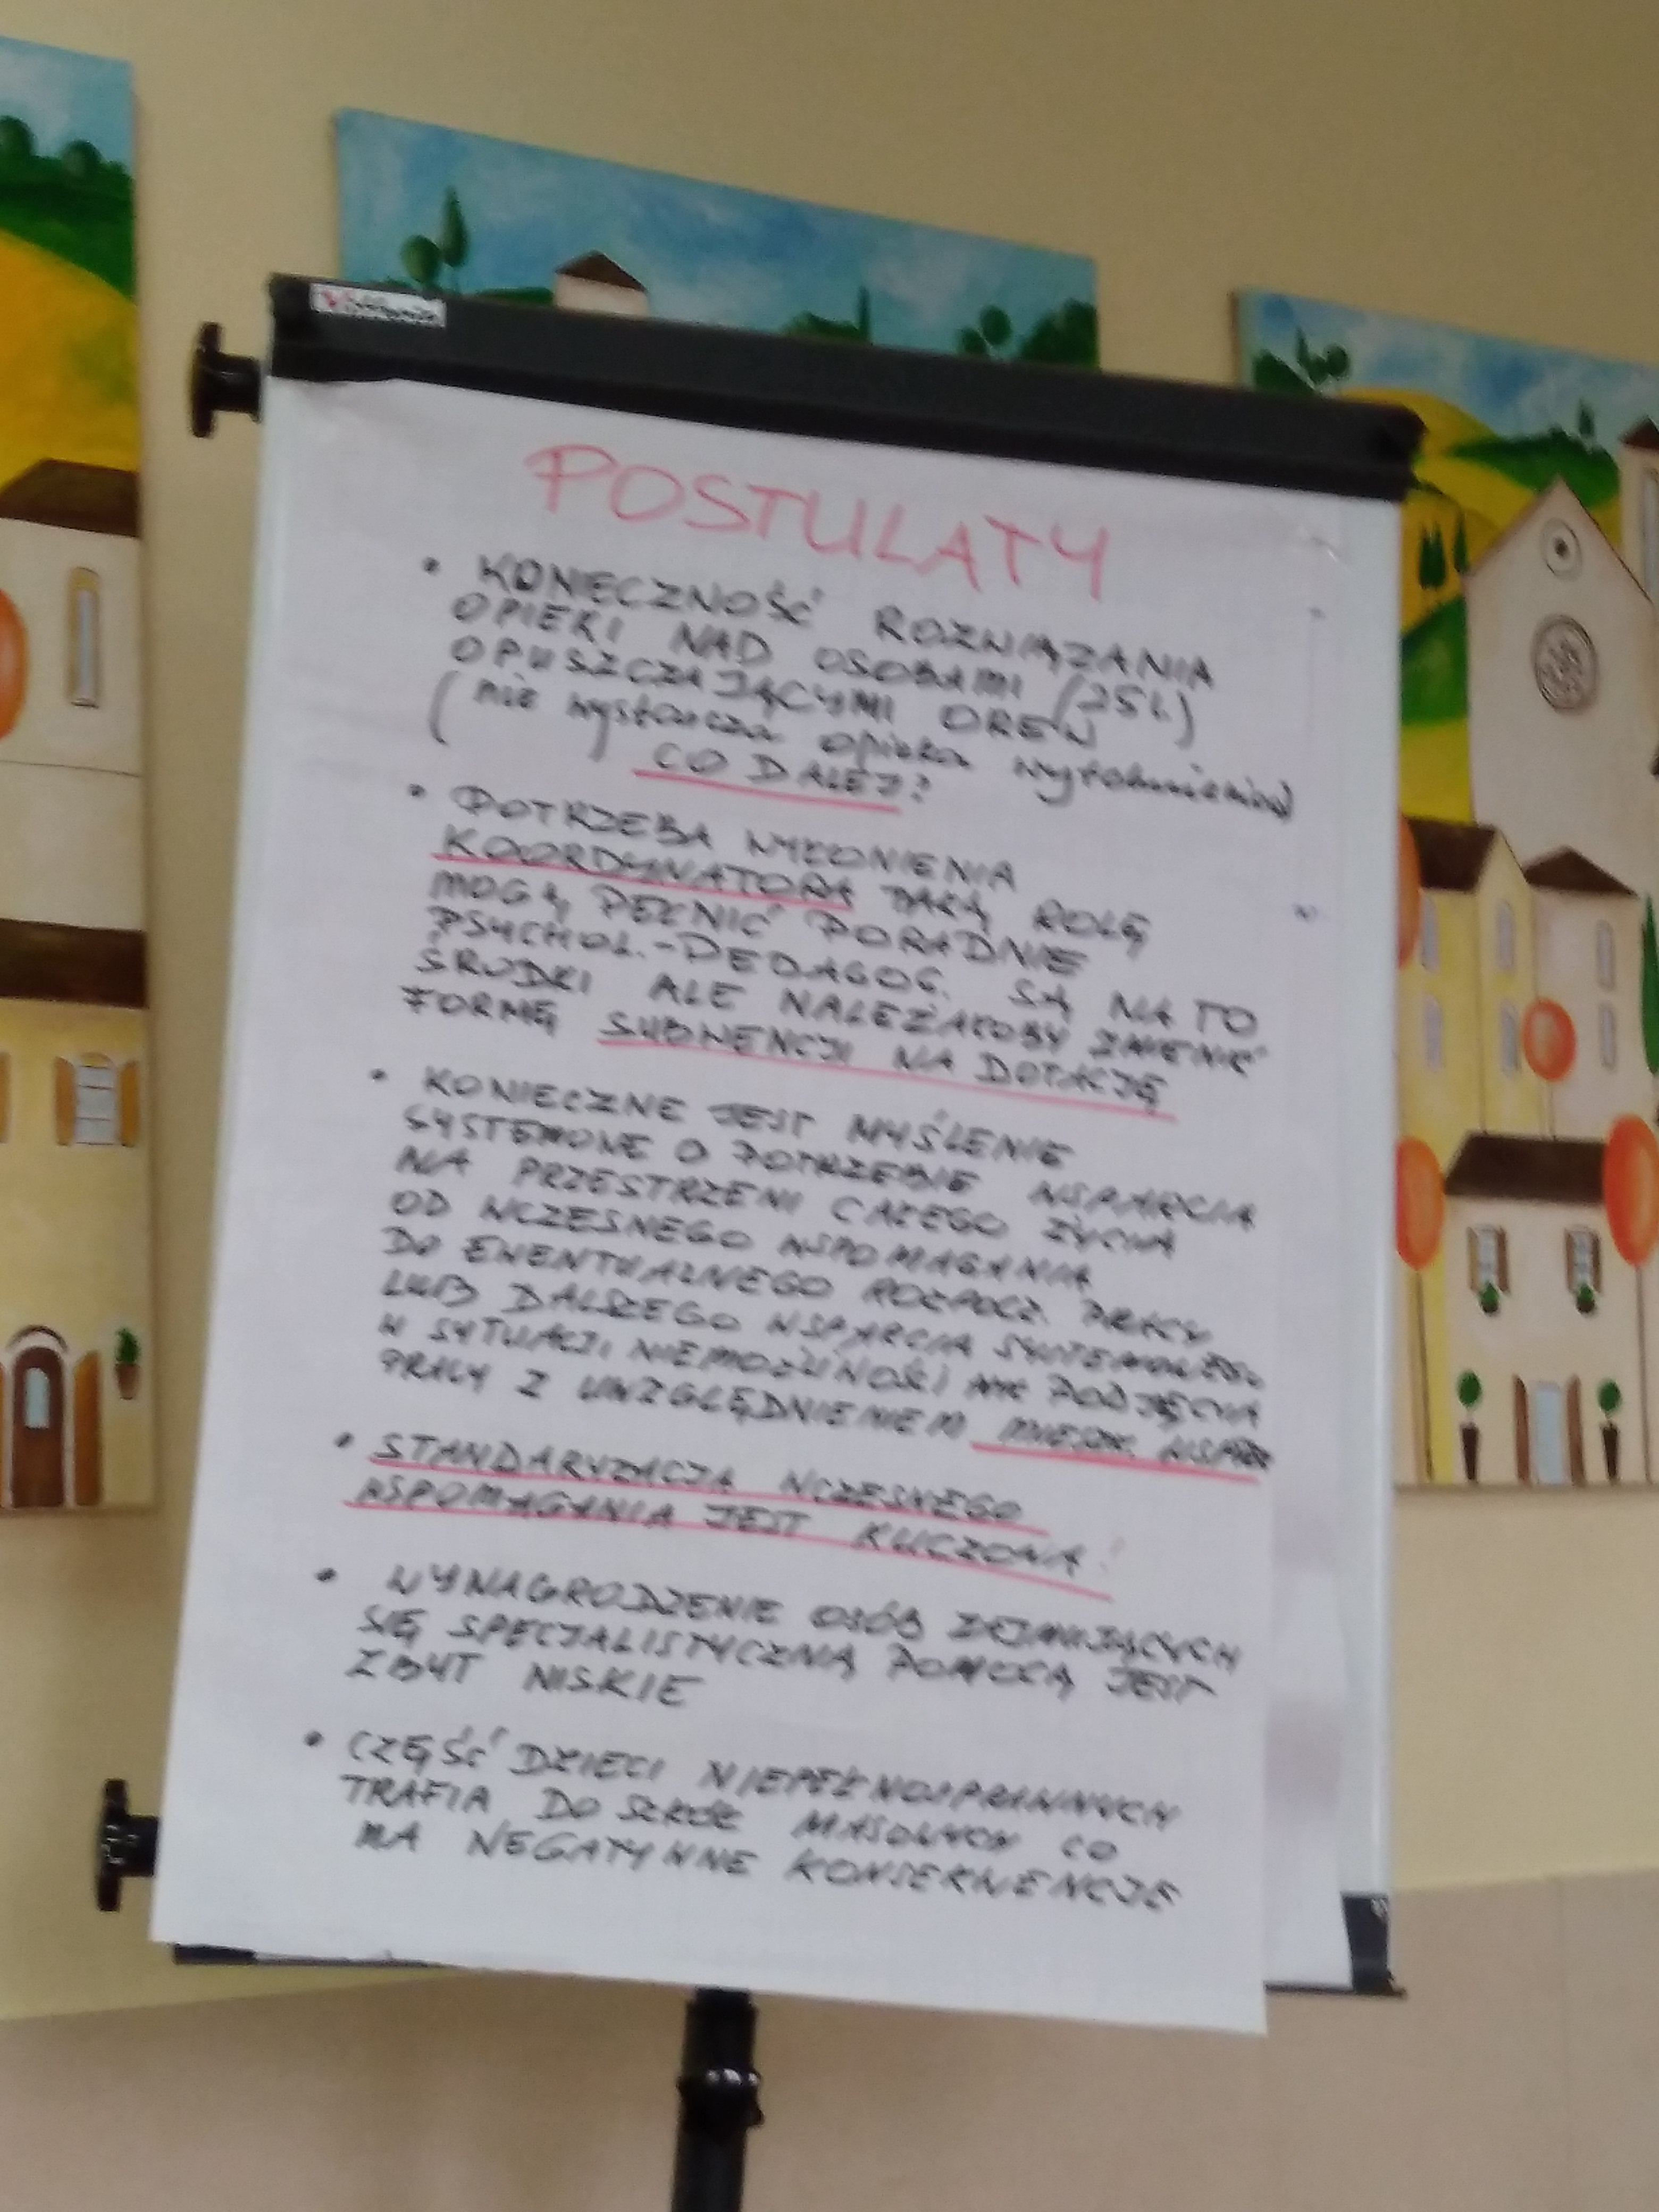 POSTULATY
• KONIECZNOŚĆ ROZWIĄZANIA
OPIEKI NAD OSOBAMI (25 L.)
OPUSZCZAJĄCYMI OREW
(nie wystarcza opieka wytchnieniowa)
CO DALEJ?
• POTRZEBA WYŁONIENIA
KOORDYNATORA TAKĄ ROLĘ
MOGĄ PEŁNIĆ PORADNIE
PSYCHOL.-PEDAGOG. SĄ NA TO
ŚRODKI ALE NALEŻAŁOBY ZMIENIĆ
FORMĘ SUBWENCJI NA DOTACJĘ
• KONIECZNE JEST MYŚLENIE
SYSTEMOWE O POTRZEBIE WSPARCIA
NA PRZESTRZENI CAŁEGO ŻYCIA
OD WCZESNEGO WSPOMAGANIA
DO EWENTUALNEGO ROZPOCZ. PRACY
LUB DALSZEGO WSPARCIA SYSTEMOWEGO
W SYTUACJI NIEMOŻLIWOŚCI PODJĘCIA
PRACY Z UWZGLĘDNIENIEM MIESZK. WSPAR
• STANDARYZACJA WCZESNEGO
WSPOMAGANIA JEST KLUCZOWA!
• WYNAGRODZENIE OSÓB ZEJMUJĄCYCH
SIĘ SPECJALISTYCZNĄ POMOCĄ JEST
ZBYT NISKIE
• CZĘŚĆ DZIECI NIEPEŁNOSPRAWNYCH
TRAFIA DO SZKÓŁ MASOWYCH CO
MA NEGATYWNE KONSEKWENCJE